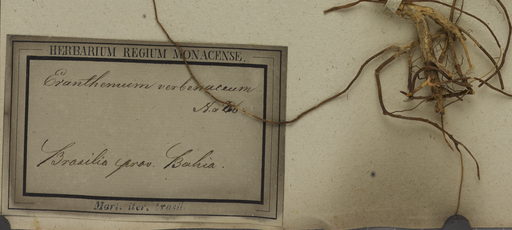 HERBARIUM REGIUM MONACENSE.
Eranthemum verbenaceum
Brasilia prov. Bahia.
Mart. iter. Brasil.